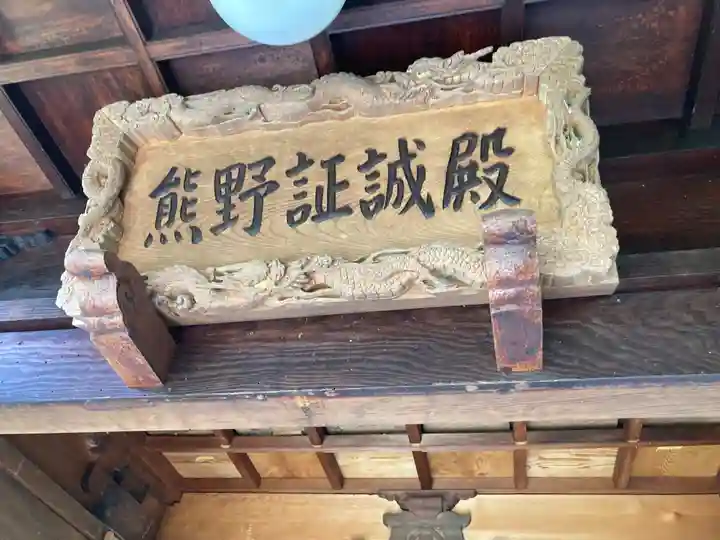 熊野証誠殿